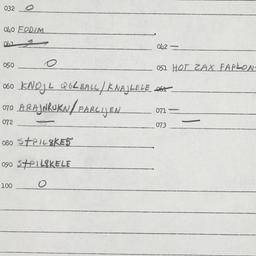 032 0
040 FODIM
042 —
050 0
051 HOT ZAX FAPLON
060 KNOJL QOLBALL/KNAJLELE
070 ARAJNRUKN/FARLIJEN
071 —
072 —
073 —
080 StPILSKES
090 StPILSKELE
100 0